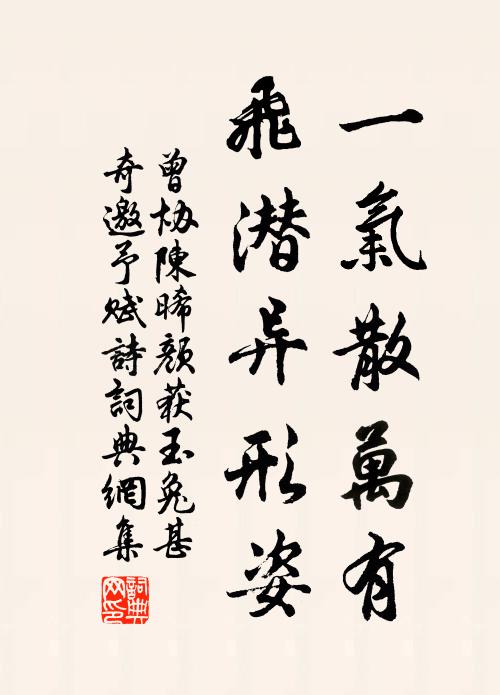 一氣散萬有
飛潜异形姿
曾协陳晞顏获玉兔甚
奇邀予赋詩詞典網集
詞典
网印